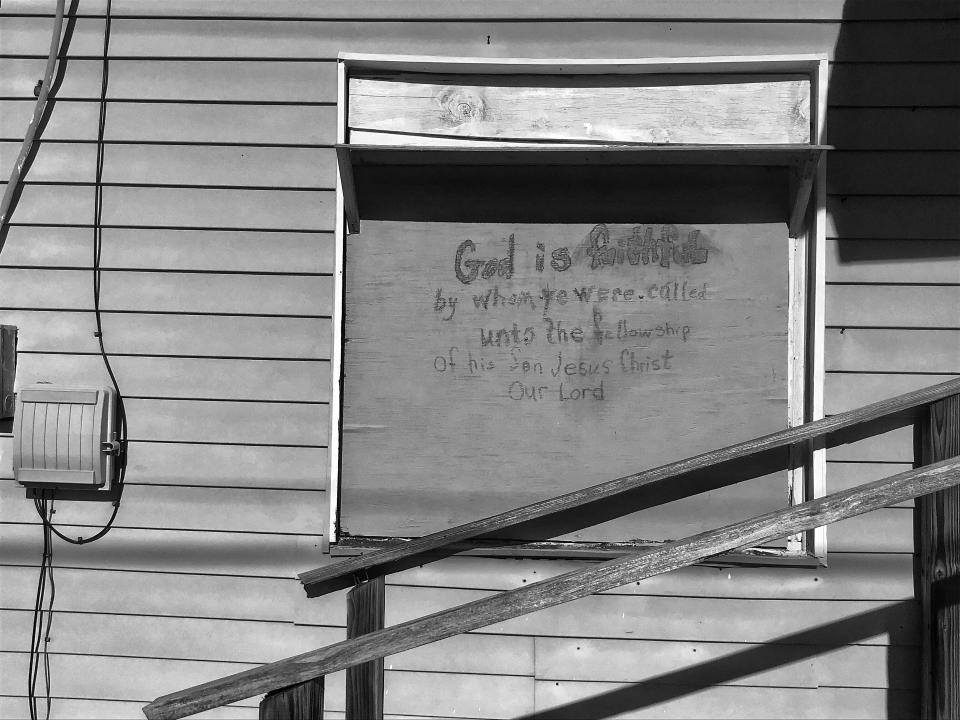 God is faithful
by whom ye were called
unto the fellowship
Of his Son Jesus Christ
Our Lord